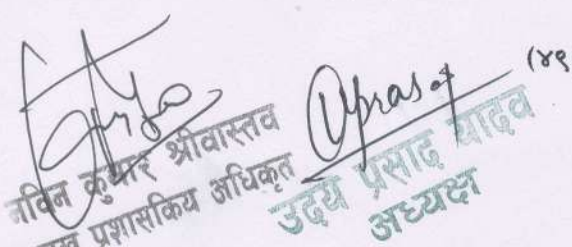 (४९
नविन कुमार श्रीवास्तव
प्रशासकिय अधिकृत
उदय प्रसाद यादव
अध्यक्ष